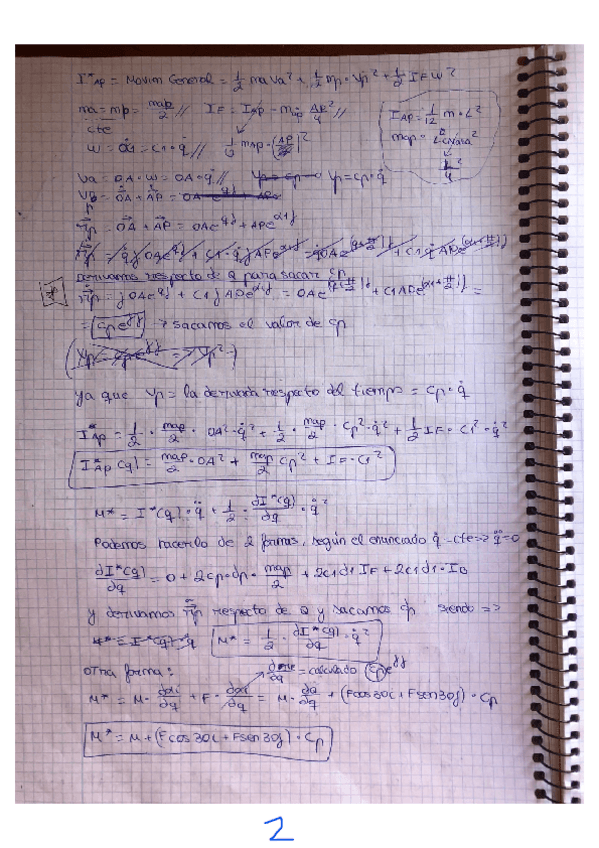 I*AP = Movim General = 1/2 ma Va² + 1/2 mp · Vp² + 1/2 IF w²
ma = mp = map/2 // IF = IAP - map AP²/4 //
cte
IAP = 1/12 m · L²
w = α̇1 = C1 · q̇ //
Va = OA · w = OA · q̇ // Vp = Cp · q̇
r⃗p = OA + AP = OAe^qj + APe^α1j
Derivamos respecto de q para sacar Cp
r⃗p = jOAe^qj + C1jAPe^α1j = OAe^(q+π/2)j + C1APe^(α1+π/2)j =
= Cpe^γj → sacamos el valor de Cp
ya que Vp = la derivada respecto del tiempo = Cp · q̇
I*AP = 1/2 · map/2 · OA² · q̇² + 1/2 · map/2 · Cp² · q̇² + 1/2 IF · C1² · q̇²
I*AP (q) = map/2 · OA² + map/2 Cp² + IF · C1²
M* = I*(q) · q̈ + 1/2 · dI*(q)/dq · q̇²
Podemos hacerlo de 2 formas, según el enunciado q̇ = cte => q̈ = 0
dI*(q)/dq = 0 + 2Cp · dp · map/2 + 2C1d1 IF + 2C1d1 · IB
y derivamos r⃗p respecto de q y sacamos dp siendo =>
M* = 1/2 · dI*(q)/dq · q̇²
otra forma:
= calculado Cpe^γj
M* = M · + F · = M · + (Fcos30i + Fsen30j) · Cp
M* = M + (Fcos30i + Fsen30j) · Cp
2